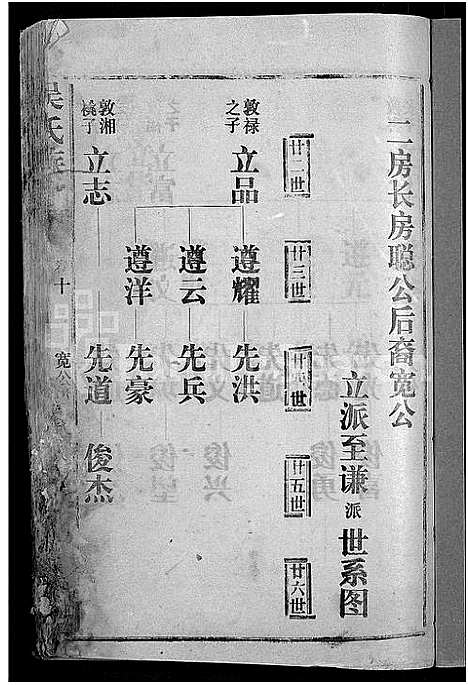 二房长房聪公后裔宽公
立派至谦派世系图
廿二世
廿三世
廿四世
廿五世
廿六世
敦禄之子
立品
遵耀
先洪
遵云
先兵
遵洋
先豪
敦湘祧子
立志
先道
俊杰
吴氏
十
宽公